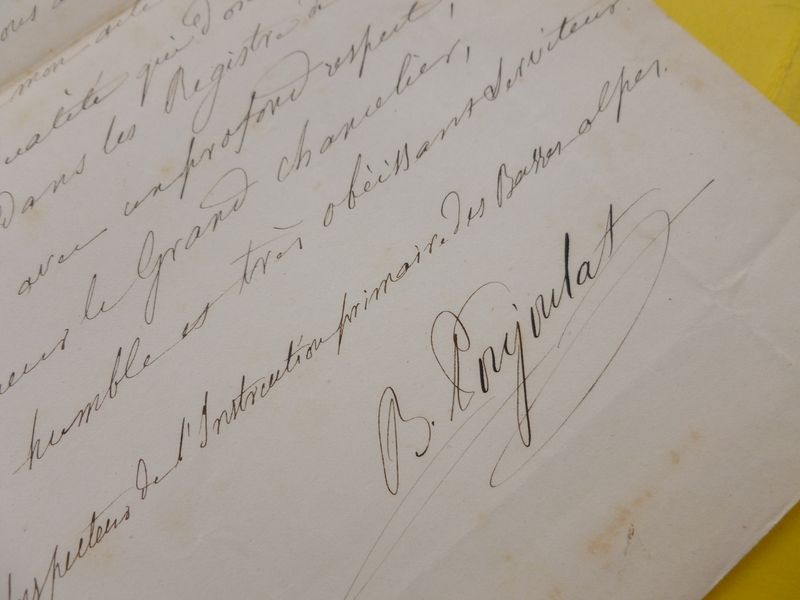 mon acte
qualité qui d'on
dans les Registre d
avec un profond respect,
le Grand chancelier,
humble et très obéissant Serviteur.
Inspecteur de l'Instruction primaire des Basses alpes.
B. Poujoulat